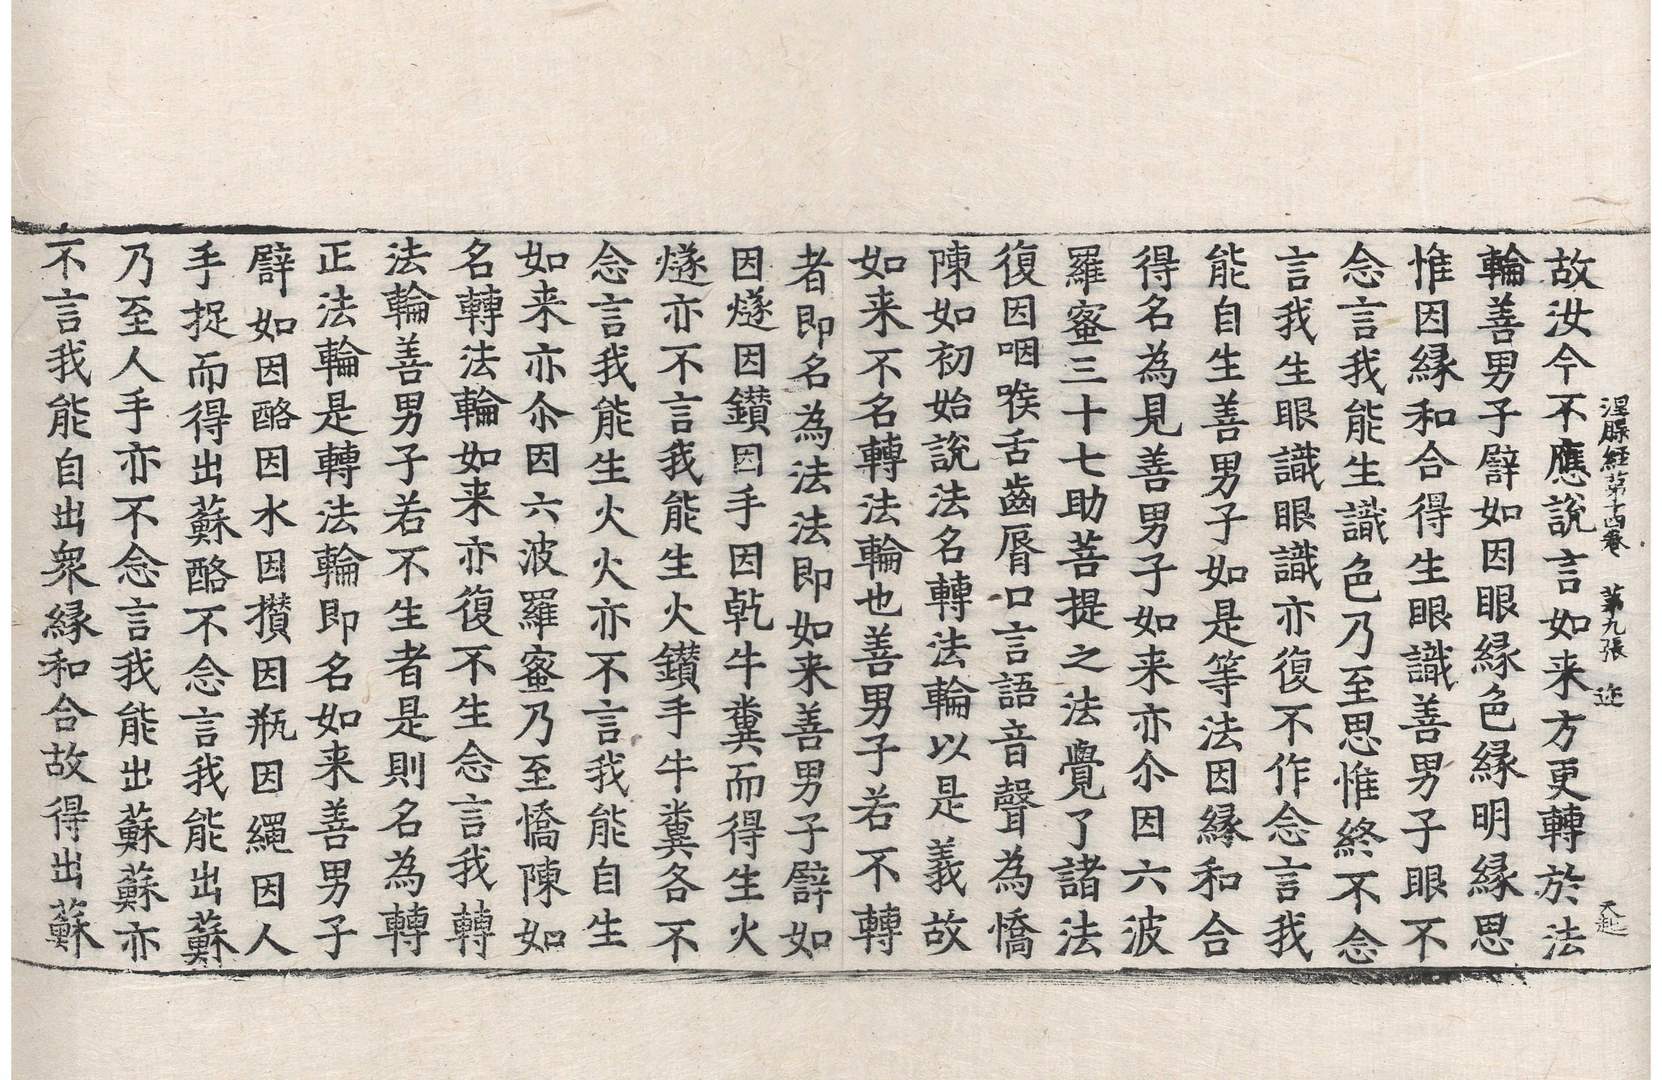 涅槃經第十四卷 第九張 迹
故汝今不應說言如来方更轉於法
輪善男子譬如因眼緣色緣明緣思
惟因緣和合得生眼識善男子眼不
念言我能生識色乃至思惟終不念
言我生眼識眼識亦復不作念言我
能自生善男子如是等法因緣和合
得名為見善男子如来亦尒因六波
羅蜜三十七助菩提之法覺了諸法
復因咽喉舌齒脣口言語音聲為憍
陳如初始說法名轉法輪以是義故
如来不名轉法輪也善男子若不轉
者即名為法法即如来善男子譬如
因燧因鑚因手因乹牛糞而得生火
燧亦不言我能生火鑚手牛糞各不
念言我能生火火亦不言我能自生
如来亦尒因六波羅蜜乃至憍陳如
名轉法輪如来亦復不生念言我轉
法輪善男子若不生者是則名為轉
正法輪是轉法輪即名如来善男子
譬如因酪因水因攅因瓶因繩因人
手捉而得出蘇酪不念言我能出蘇
乃至人手亦不念言我能出蘇蘇亦
不言我能自出衆緣和合故得出蘇